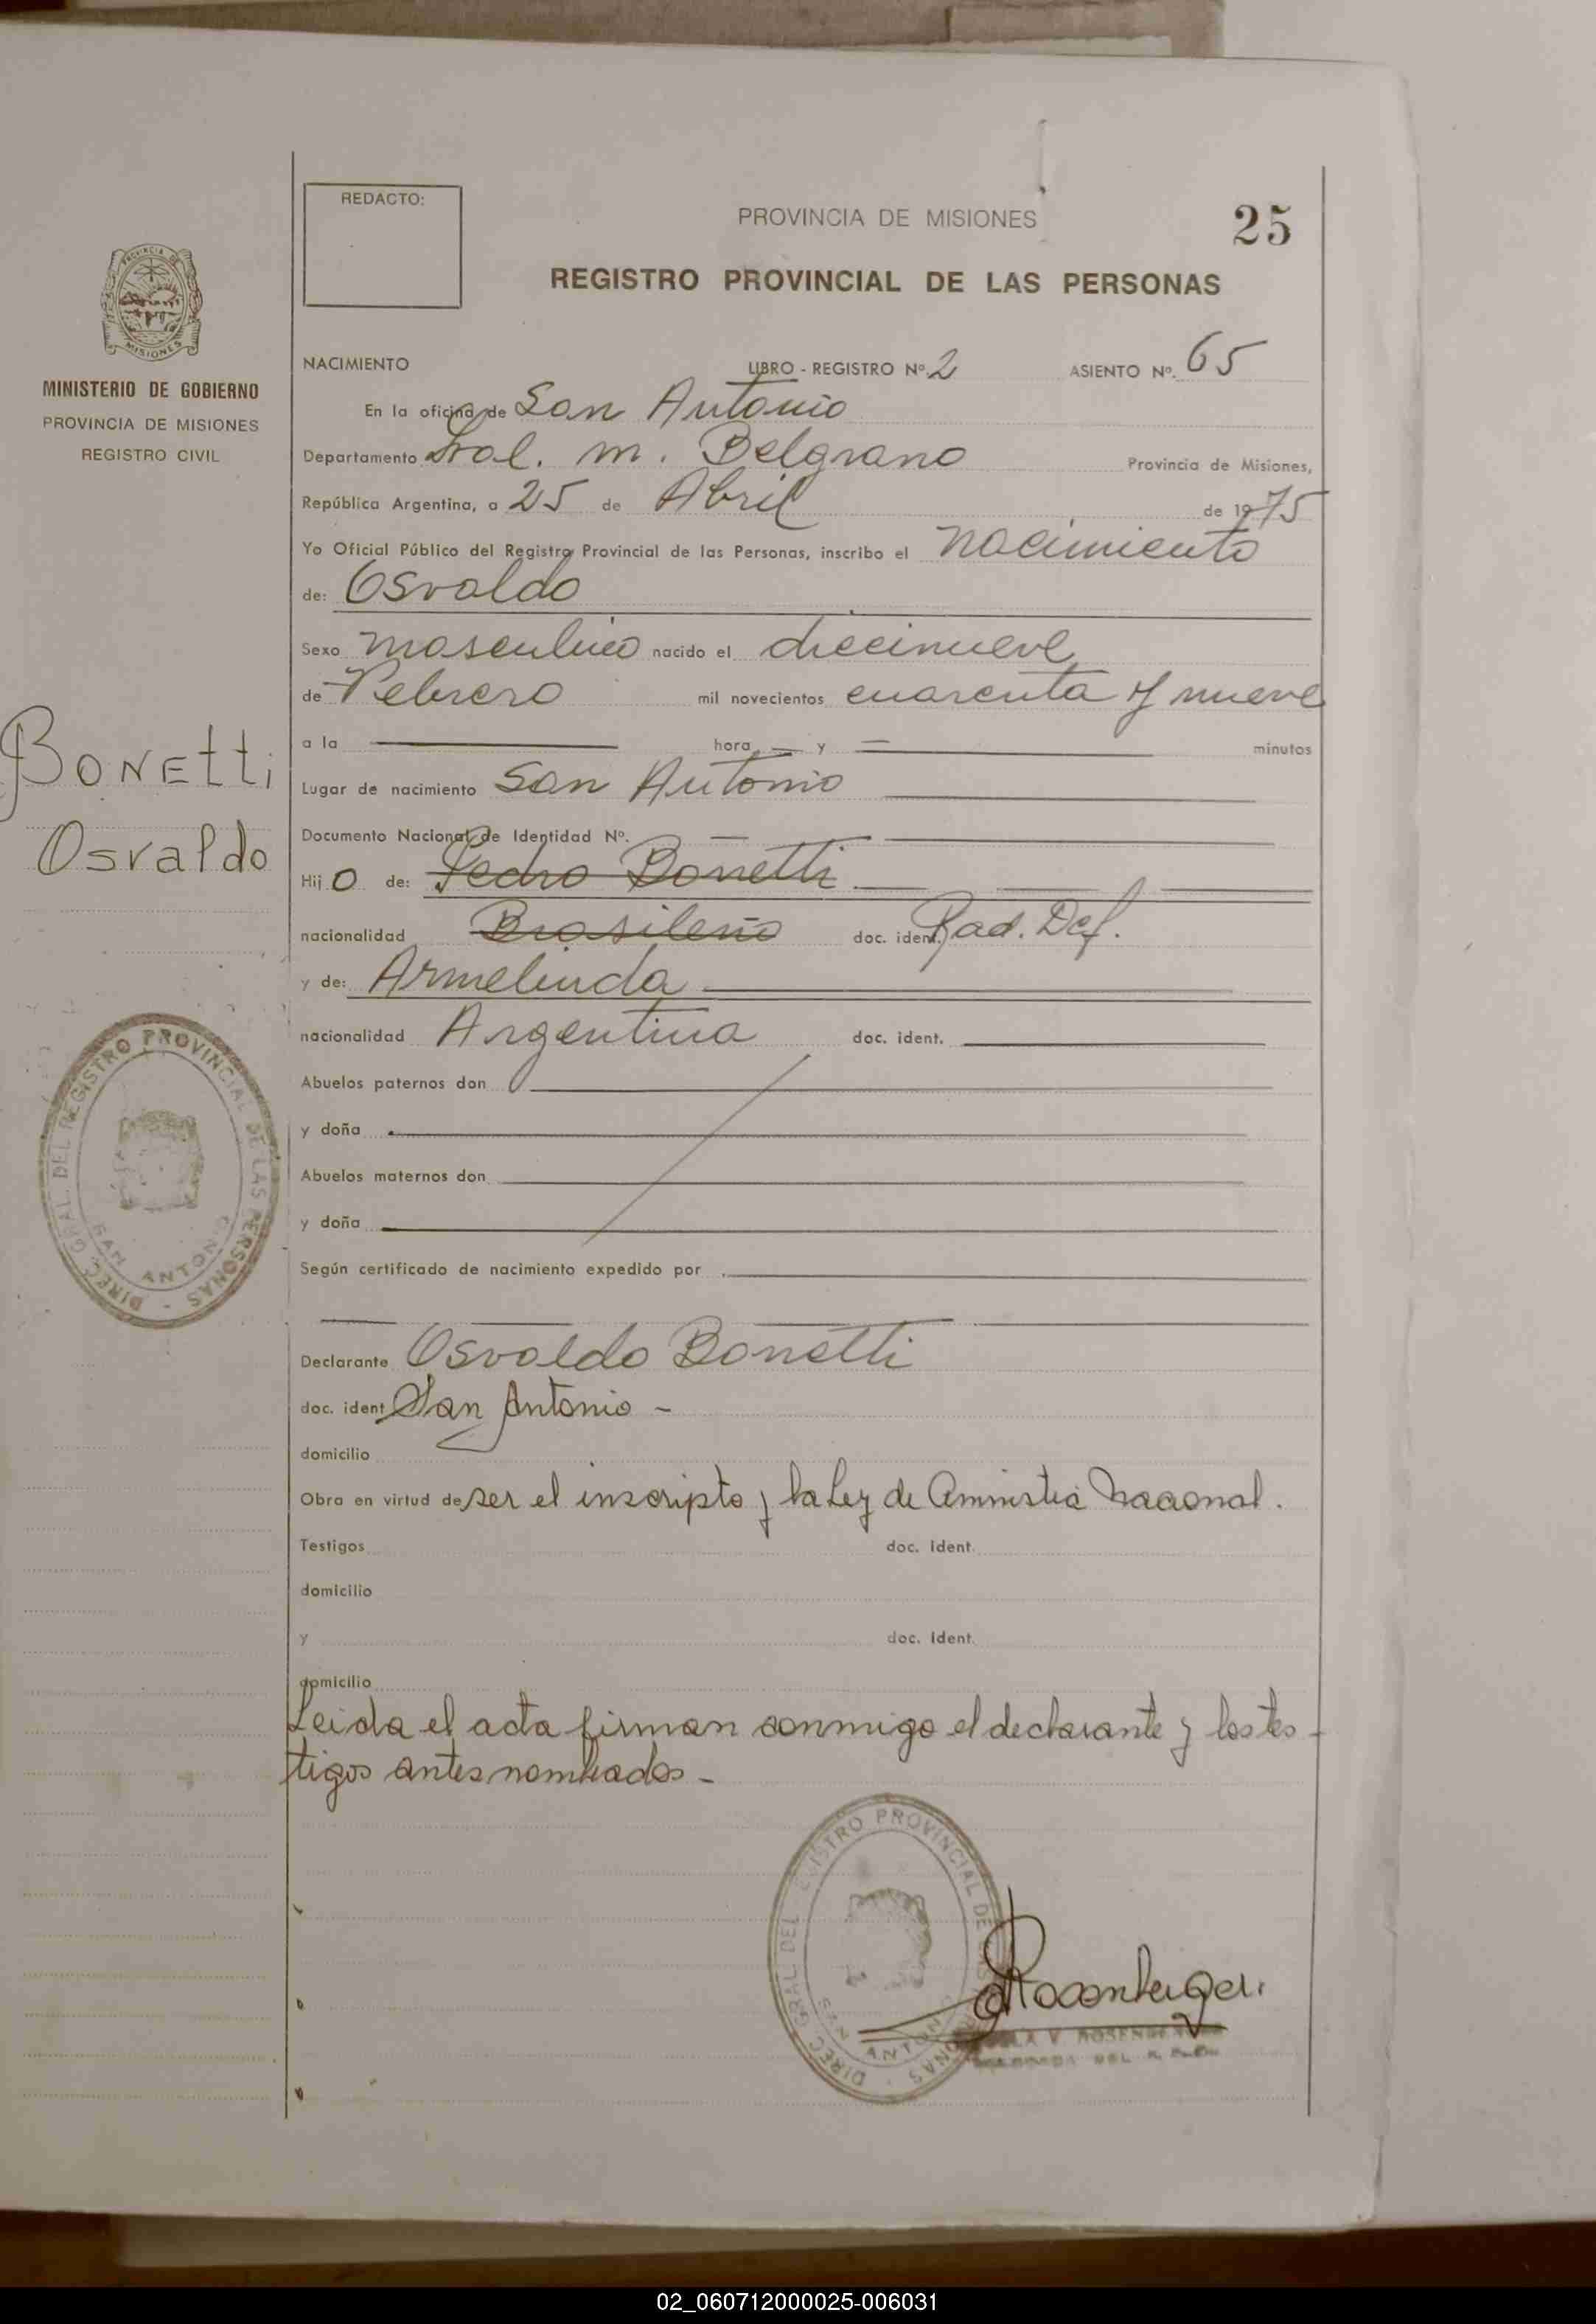 REDACTO:
PROVINCIA DE MISIONES
25
REGISTRO PROVINCIAL DE LAS PERSONAS
PROVINCIA DE
MISIONES
MINISTERIO DE GOBIERNO
PROVINCIA DE MISIONES
REGISTRO CIVIL
NACIMIENTO LIBRO - REGISTRO Nº. 2 ASIENTO Nº. 65
En la oficina de San Antonio
Departamento Gral. M. Belgrano Provincia de Misiones,
República Argentina, a 25 de Abril de 1975
Yo Oficial Público del Registro Provincial de las Personas, inscribo el nacimiento
de: Osvaldo
Sexo masculino nacido el diecinueve
de Febrero mil novecientos cuarenta y nueve
a la — hora — y — minutos
Bonetti
Osvaldo
Lugar de nacimiento San Antonio
Documento Nacional de Identidad Nº. —
Hij o de: Pedro Bonetti
nacionalidad Brasileño doc. ident. Rad. Def.
y de: Armelinda
nacionalidad Argentina doc. ident.
Abuelos paternos don
y doña
Abuelos maternos don
y doña
DIREC. GRAL. DEL REGISTRO PROVINCIAL DE LAS PERSONAS -
SAN ANTONIO
Según certificado de nacimiento expedido por
Declarante Osvaldo Bonetti
doc. ident San Antonio -
domicilio
Obra en virtud de ser el inscripto y la Ley de Amnistia Nacional.
Testigos doc. ident.
domicilio
y doc. ident.
domicilio
Leida el acta firman conmigo el declarante y los tes-
tigos antes nombrados -
DIREC GRAL DEL REGISTRO PROVINCIAL DE LAS PERSONAS -
SAN ANTONIO
02_060712000025-006031